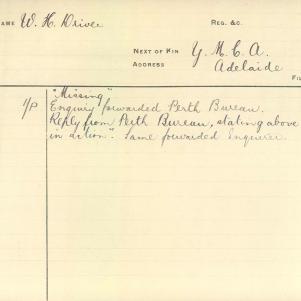 NAME W. H. Driver REG. &C.
NEXT OF KIN Y. M. C. A.
ADDRESS Adelaide
"Missing"
Enquiry forwarded Perth Bureau.
Reply from Perth Bureau, stating above
in action". Same forwarded Enquirer.